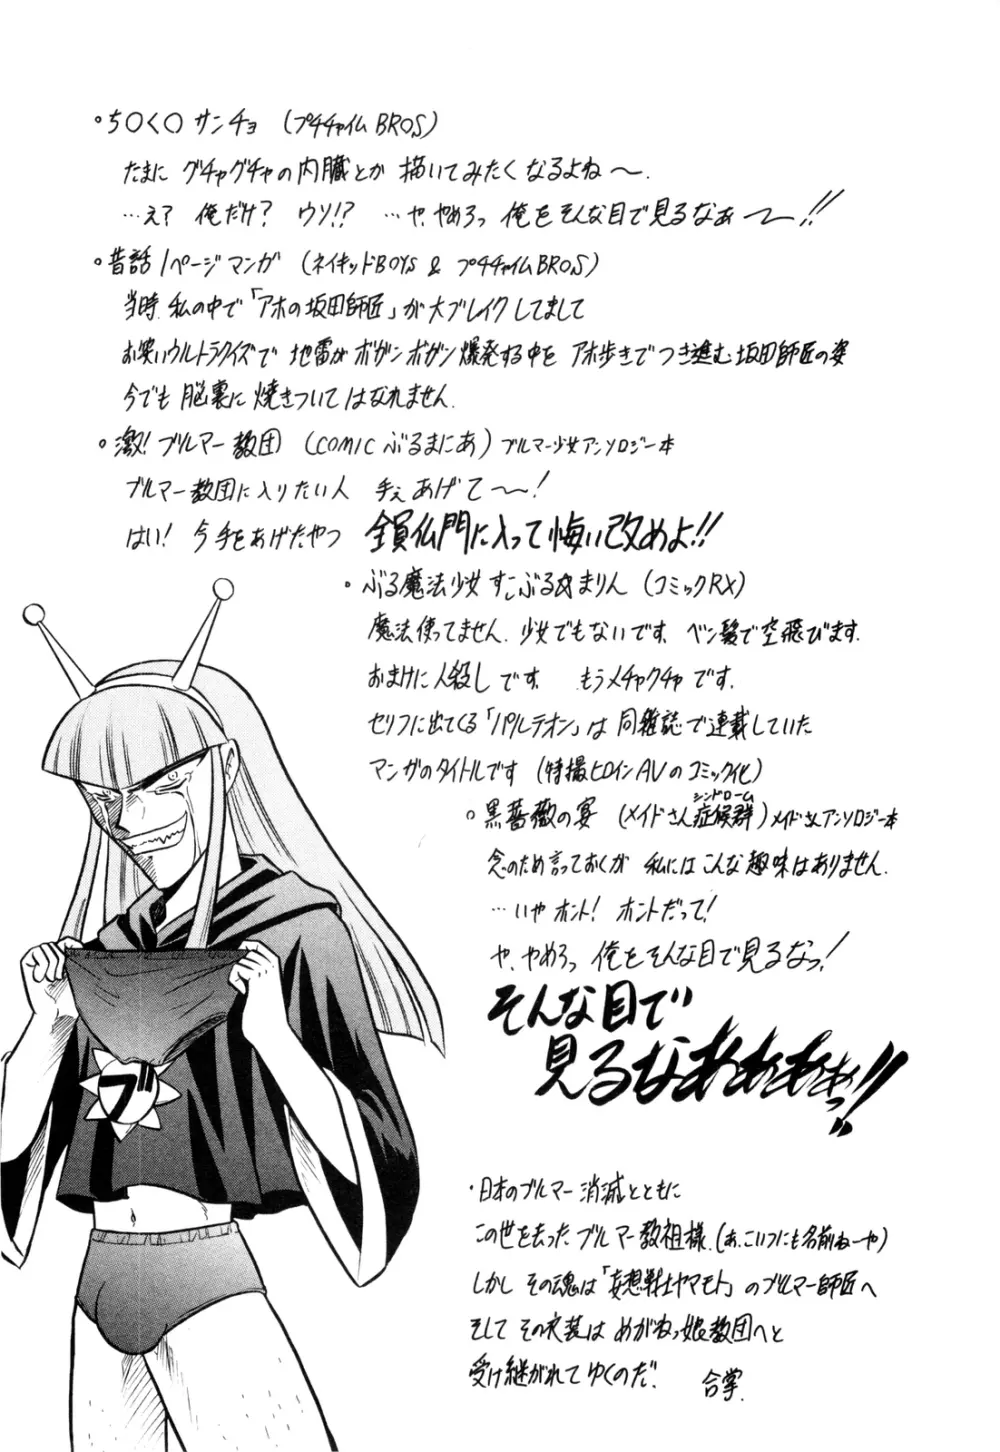 ・ち〇く〇 サンチョ (プチチャイムBROS)
たまに グチャグチャの内臓とか 描いてみたくなるよね〜.
…え? 俺だけ? ウソ!? …ヤ.やめろっ 俺をそんな目で見るなぁー!!
・昔話1ページマンガ (ネイキッドBOYS & プチチャイムBROS)
当時.私の中で「アホの坂田師匠」が大ブレイクしてまして
お笑いウルトラクイズで 地雷がボガンボガン爆発する中を アホ歩きでつき進む坂田師匠の姿
今でも脳裏に 焼きついてはなれません.
・激!ブルマー教団 (COMIC ぶるまにあ) ブルマー少女アンソロジー本
ブルマー教団に入りたい人 手ぇあげて〜!
はい! 今手をあげたやつ 全員仏門に入って悔い改めよ!!
・ぶる魔法少女 すこぶる☆まりん (コミックRX)
魔法使ってません.少女でもないです.ベン髪で空飛びます.
おまけに人殺しです. もうメチャクチャです.
セリフに出てくる「パルテオン」は同雑誌で連載していた
マンガのタイトルです (特撮ヒロインAVのコミック化)
・黒薔薇の宴 (メイドさん症候群) メイドさんアンソロジー本
シンドローム
念のため言っておくが 私にはこんな趣味はありません.
…いやホント! ホントだって!
ヤ.やめろっ 俺をそんな目で見るなっ!
そんな目で
見るなああああぁっ!!
ブ
・日本のブルマー消滅とともに
この世を去ったブルマー教祖様.(あ.こいつにも名前ねーや)
しかし その魂は「妄想戦士ヤマモト」のブルマー師匠へ
そして その衣装は めがねっ娘教団へと
受け継がれてゆくのだ. 合掌.